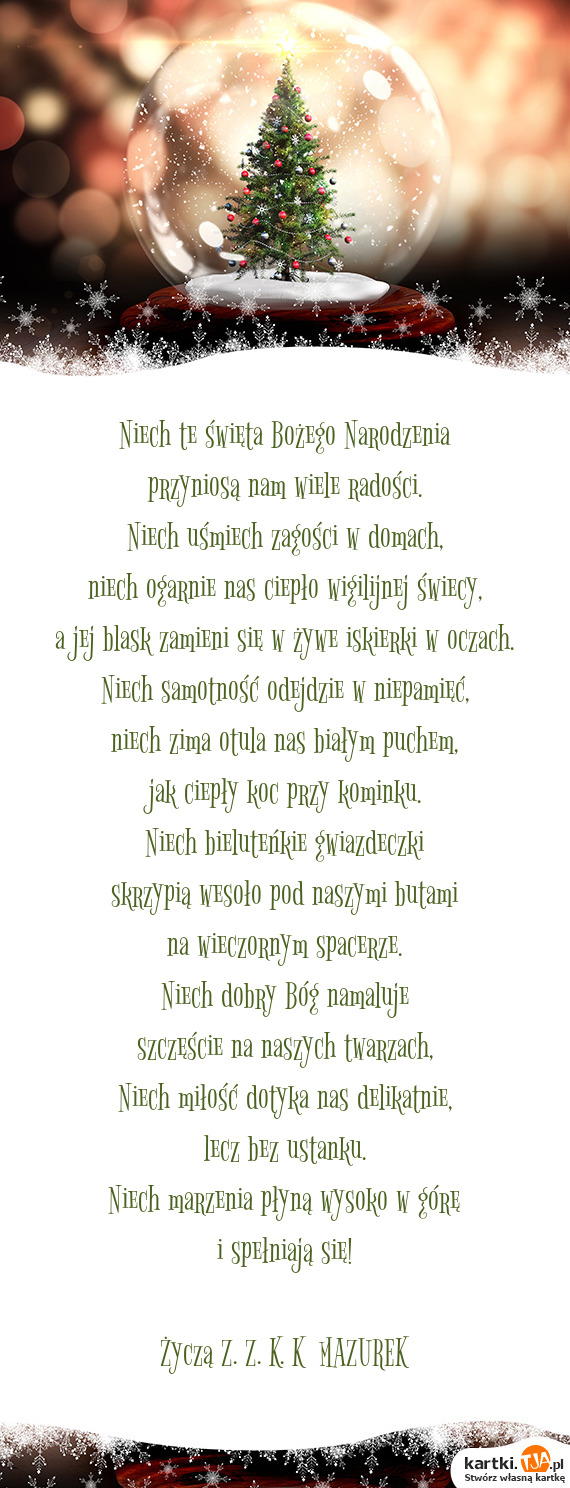 Niech te święta Bożego Narodzenia
przyniosą nam wiele radości.
Niech uśmiech zagości w domach,
niech ogarnie nas ciepło wigilijnej świecy,
a jej blask zamieni się w żywe iskierki w oczach.
Niech samotność odejdzie w niepamięć,
niech zima otula nas białym puchem,
jak ciepły koc przy kominku.
Niech bieluteńkie gwiazdeczki
skrzypią wesoło pod naszymi butami
na wieczornym spacerze.
Niech dobry Bóg namaluje
szczęście na naszych twarzach,
Niech miłość dotyka nas delikatnie,
lecz bez ustanku.
Niech marzenia płyną wysoko w górę
i spełniają się!
Życzą Z. Z. K. K MAZUREK
kartki.TJA.pl
Stwórz własną kartkę